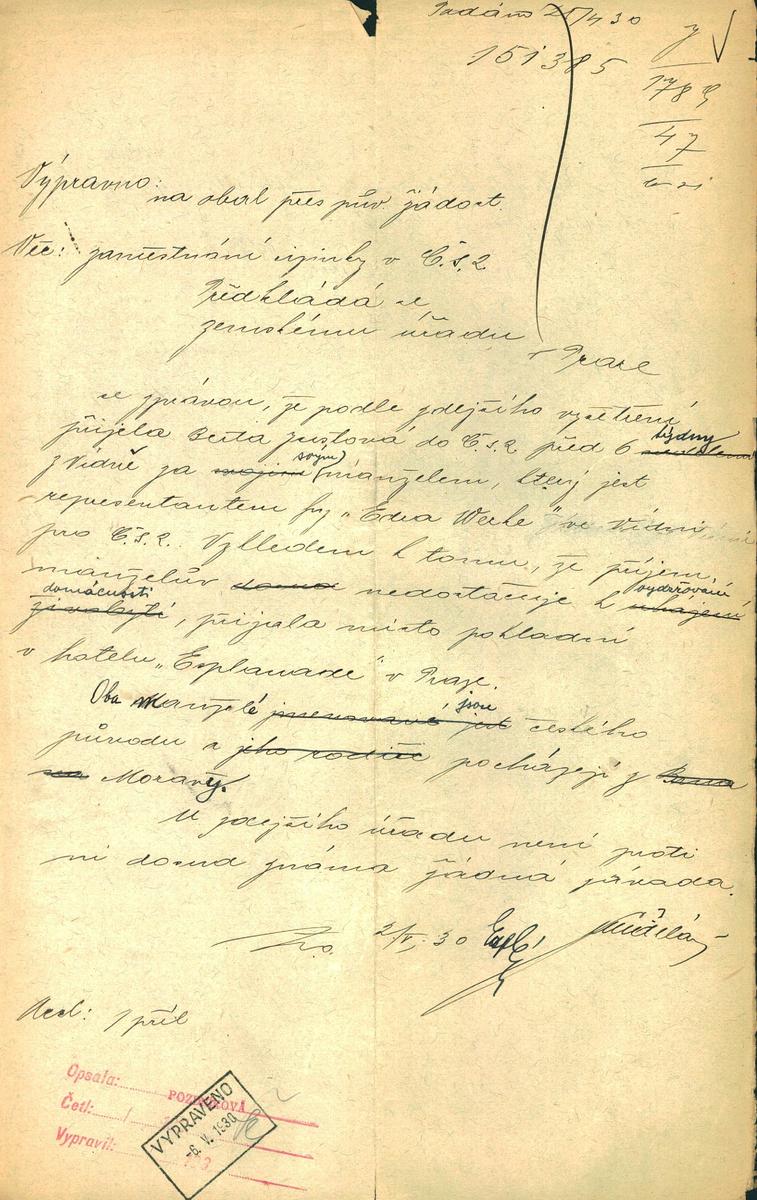 Podáno 25/4 30
151385
y
178
47
Výpravno:
na obal přes pův. žádost.
Věc: zaměstnání cizinky v Č.s.R.
Předkládá se
zemskému úřadu
v Praze
se zprávou, že podle zdejšího vyšetření
přijela Berta do Č.s.R. před 6 týdny
z Vídně za svým manželem, který jest
representantem fy „Edra Werke" ve Vídni
pro Č.s.R. Vzhledem k tomu, že příjem
manželův nedostačuje k vydržování
domácnosti, přijala místo pokladní
v hotelu „Esplanade" v Praze.
Oba manželé jsou českého
původu a pocházejí z
Moravy.
U zdejšího úřadu není proti
ní dosud známa žádná závada.
2/V. 30
1 příl
Opsala: POZ
Četl:
Vypravil:
VYPRAVENO
-6. V. 1930